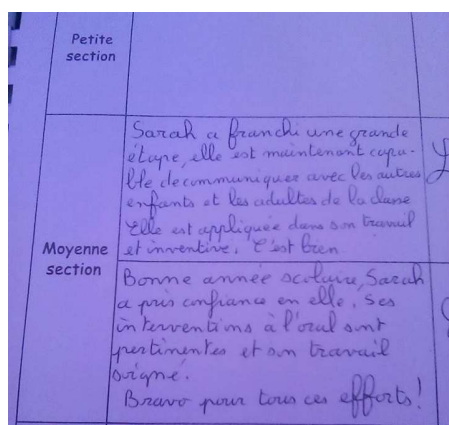 Petite
section
Sarah a franchi une grande
étape, elle est maintenant capa-
ble de communiquer avec les autres
enfants et les adultes de la classe
Elle est appliquée dans son travail
et inventive. C'est bien
Moyenne
section
Bonne année scolaire, Sarah
a pris confiance en elle. Ses
interventions à l'oral sont
pertinentes et son travail
soigné.
Bravo pour tous ces efforts!